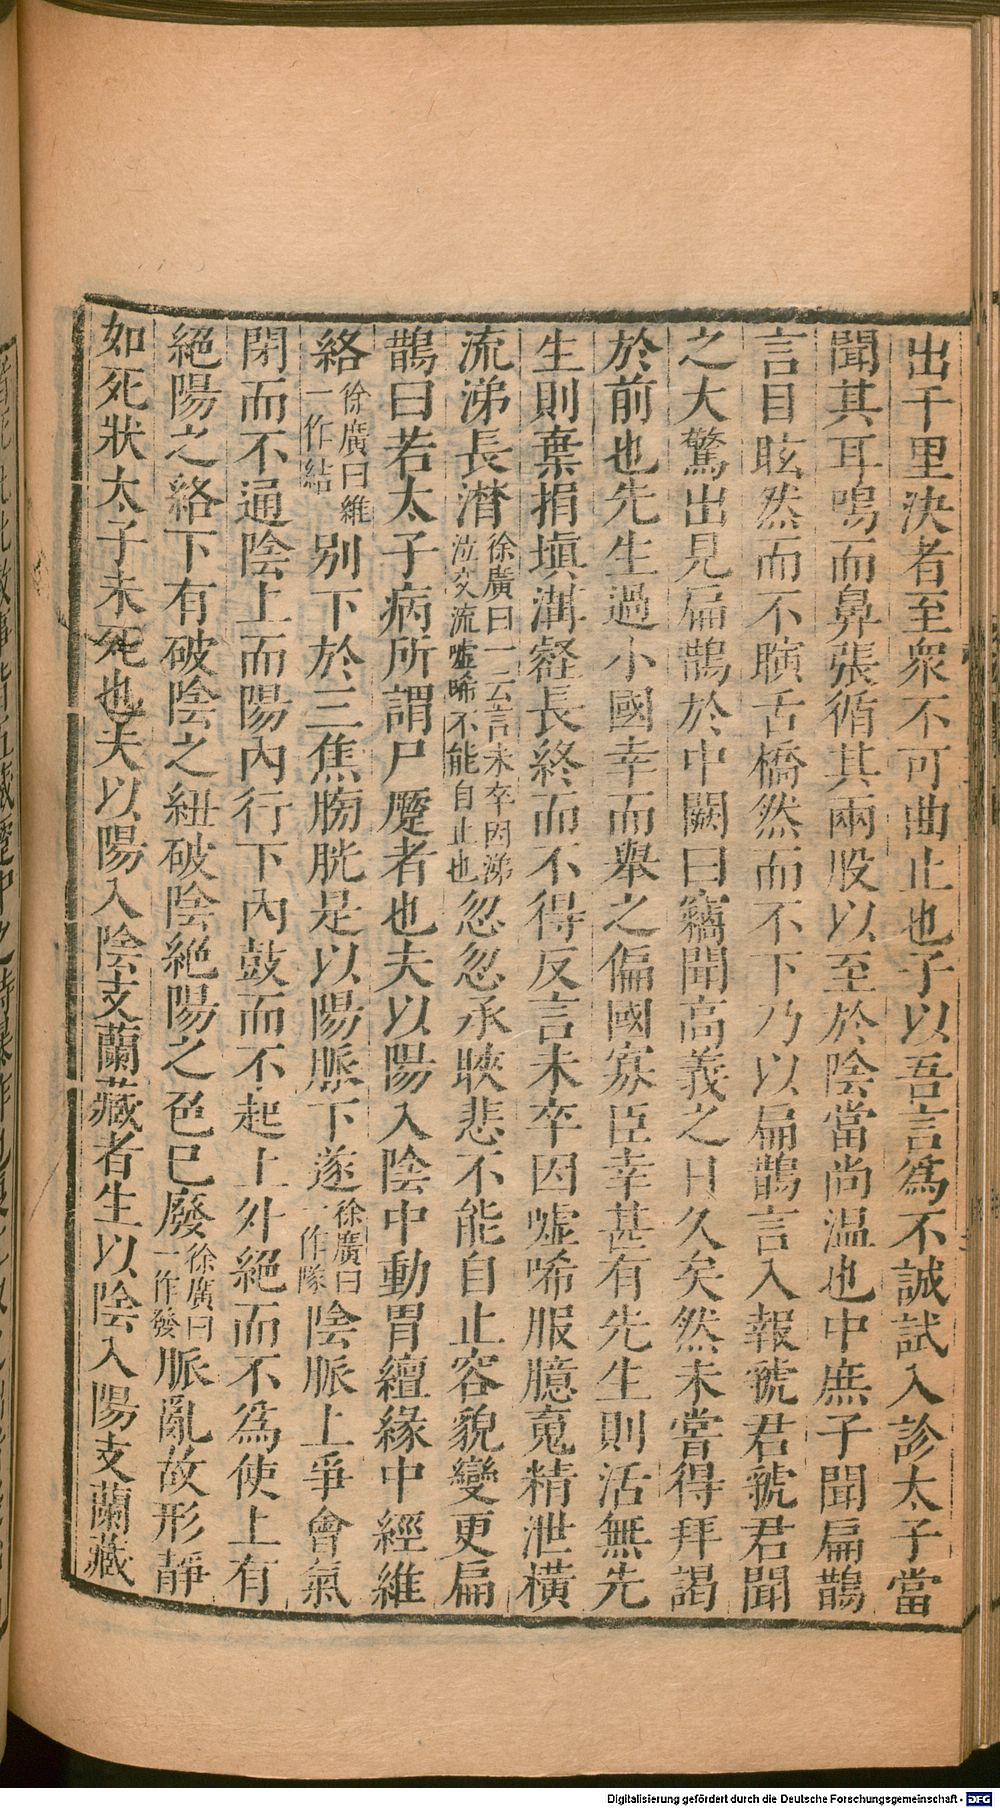 出千里決者至衆不可曲止也子以吾言爲不誠試入診太子當
聞其耳鳴而鼻張循其兩股以至於陰當尚温也中庶子聞扁鵲
言目眩然而不瞚舌撟然而不下乃以扁鵲言入報虢君虢君聞
之大驚出見扁鵲於中闕曰竊聞高義之日久矣然未嘗得拜謁
於前也先生過小國幸而舉之偏國寡臣幸甚有先生則活無先
生則棄捐塡溝壑長終而不得反言未卒因噓唏服臆䰟精泄橫
流涕長潸徐廣曰一云言未卒因涕泣交流噓唏不能自止也忽忽承睫悲不能自止容貌變更扁
鵲曰若太子病所謂尸蹷者也夫以陽入陰中動胃繵緣中經維
絡徐廣曰維一作結别下於三焦膀胱是以陽脈下遂徐廣曰一作隊陰脈上爭會氣
閉而不通陰上而陽內行下內鼓而不起上外絕而不爲使上有
絕陽之絡下有破陰之紐破陰絕陽之色已廢徐廣曰一作發脈亂故形靜
如死狀太子未死也夫以陽入陰支蘭藏者生以陰入陽支蘭藏
Digitalisierung gefördert durch die Deutsche Forschungsgemeinschaft - DFG